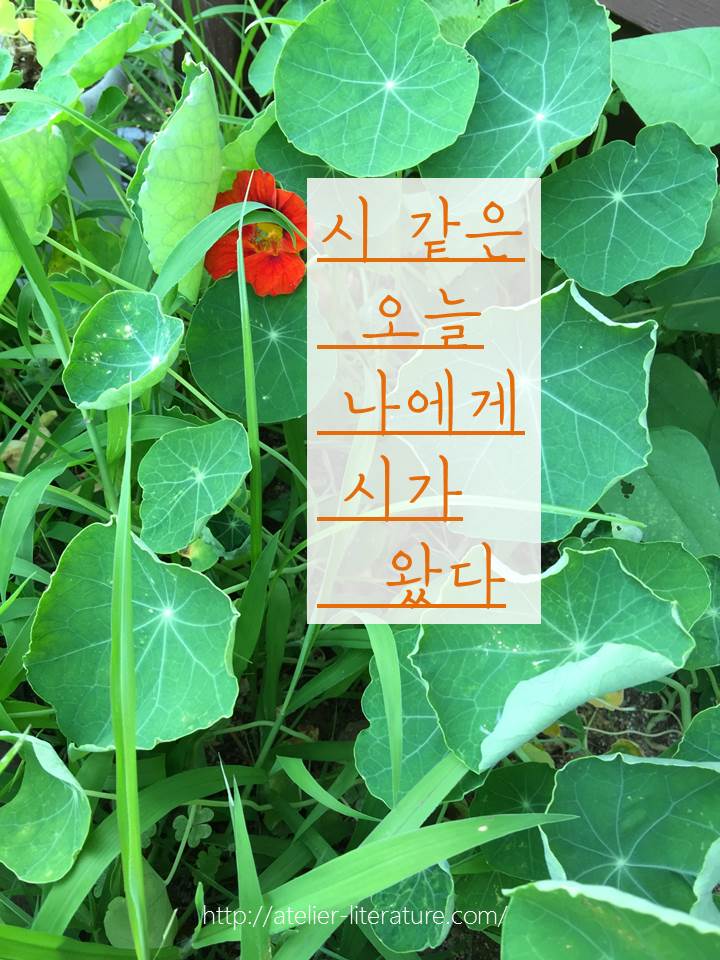 시 같은
오늘
나에게
시가
왔다
http://atelier-literature.com/